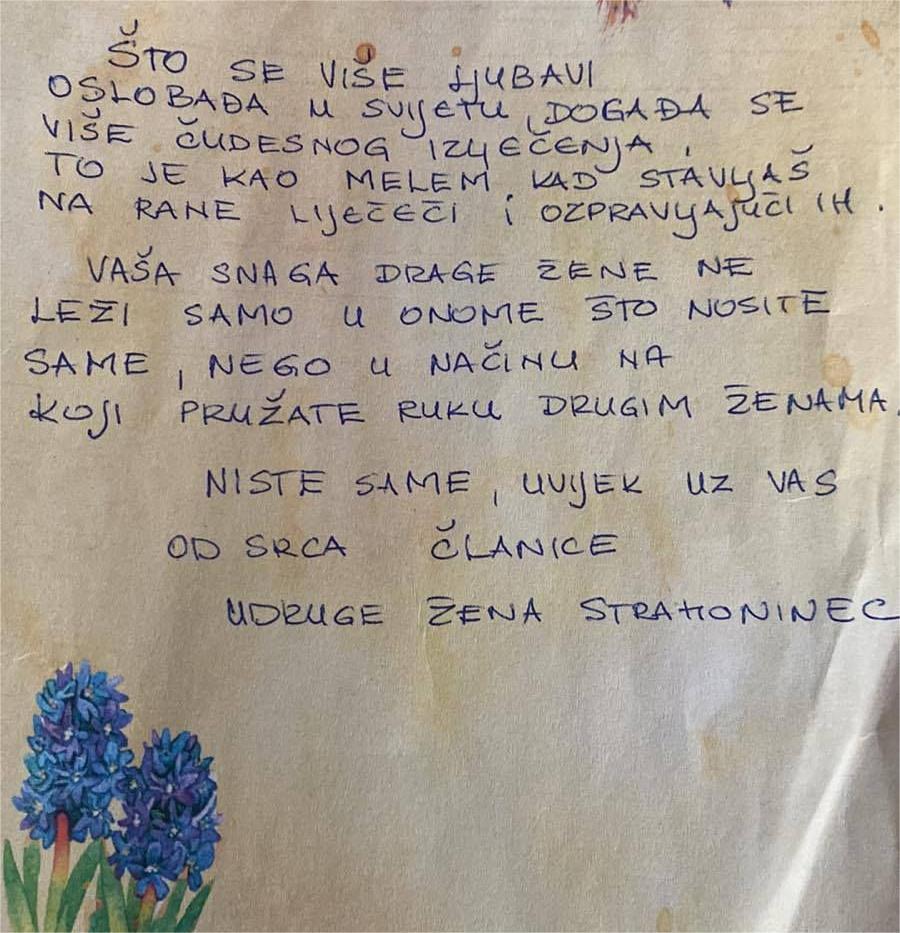 ŠTO SE VIŠE LJUBAVI
OSLOBAĐA U SVIJETU, DOGAĐA SE
VIŠE ČUDESNOG IZLJEČENJA,
TO JE KAO MELEM KAD STAVLJAŠ
NA RANE LIJEČEČI I OZPRAVLJAJUČI IH.
VAŠA SNAGA DRAGE ŽENE NE
LEŽI SAMO U ONOME ŠTO NOSITE
SAME, NEGO U NAČINU NA
KOJI PRUŽATE RUKU DRUGIM ŽENAMA.
NISTE SAME, UVIJEK UZ VAS
OD SRCA ČLANICE
UDRUGE ŽENA STRAHONINEC